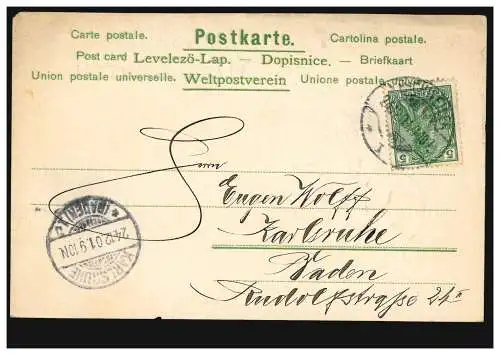 Carte postale. Postkarte. Cartolina postale.
Post card Levelezö-Lap. — Dopisnice. — Briefkaart
Union postale universelle. Weltpostverein Unione postale
5 5
Herrn
Eugen Wolff
Karlsruhe
Baden
Rudolfstrasse 24 II
KARLSRUHE
24.12.01.9-10N.
* (BADEN) *